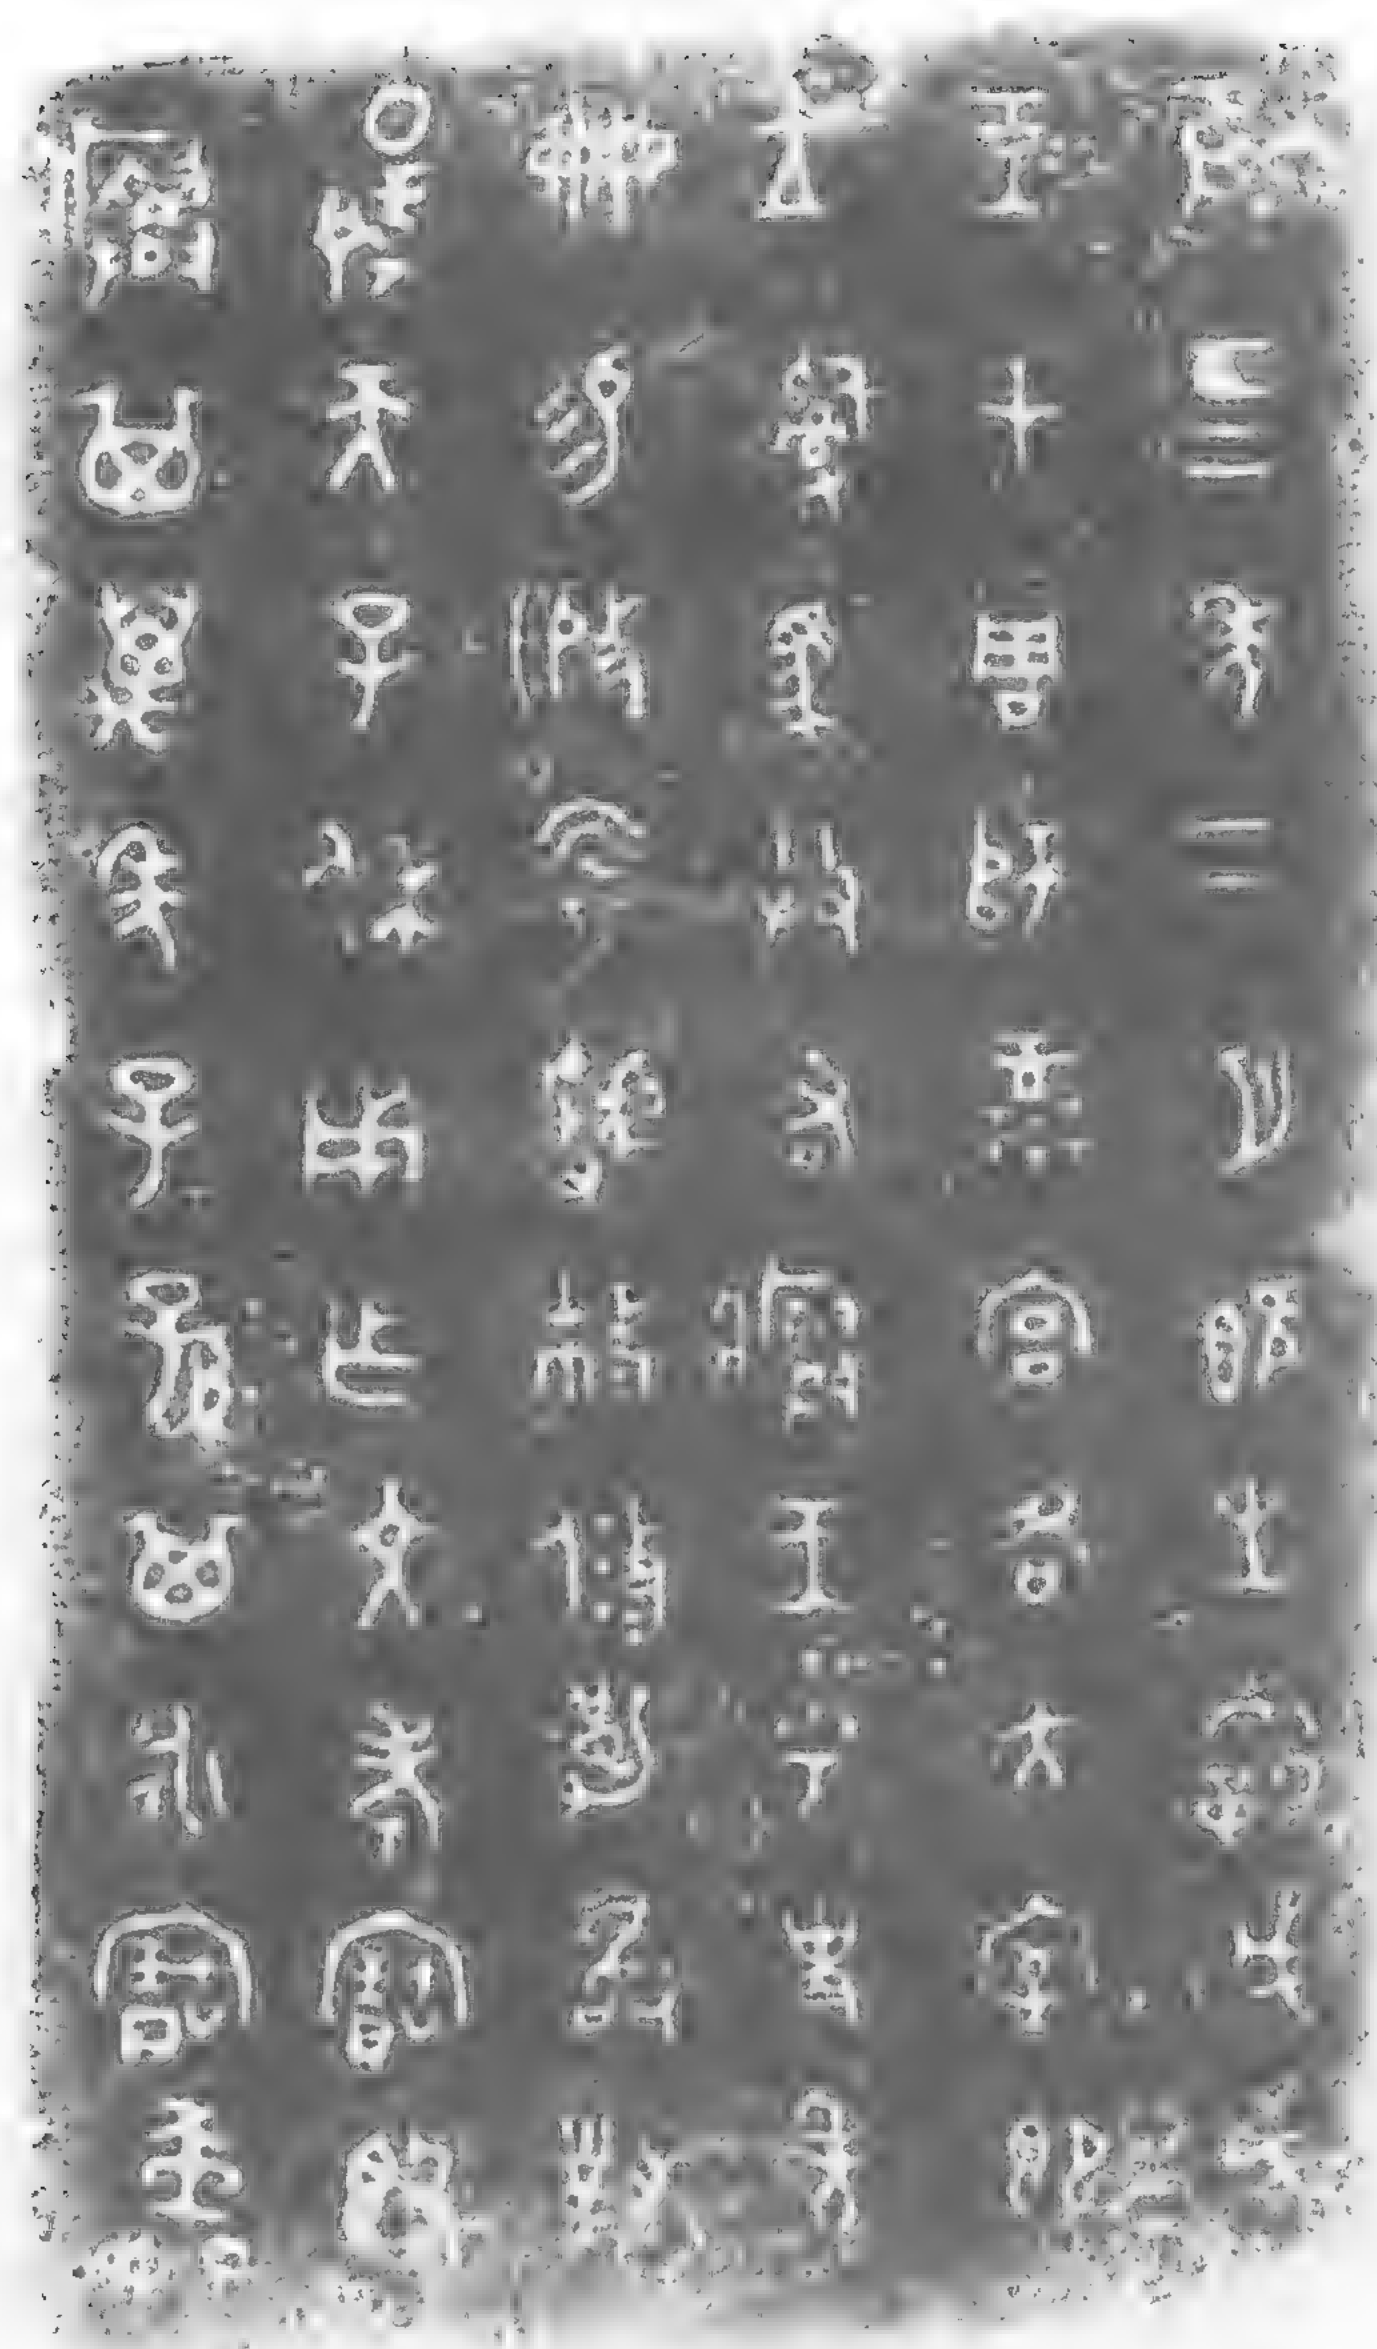 隹四年二月既生霸戊戌
王才周師彔宮各大室即
立𤔲馬共右𤼈王乎史年
冊易般靳虢攸勒敢對
揚天子休用乍文考寶簋
𤼈其萬年子孫其永寶木羊冊